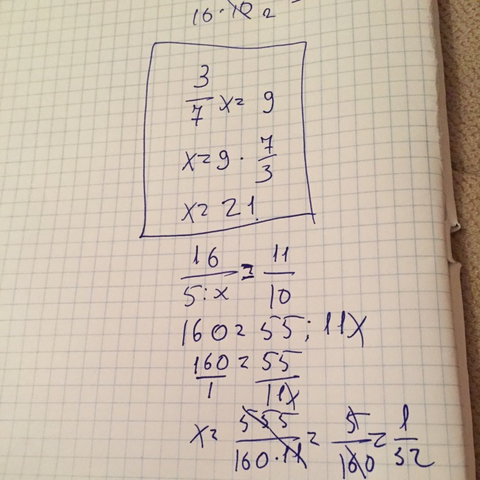 16·10 2
3/7 x = 9
x = 9 · 7/3
x = 21
16/5:x = 11/10
160 = 55 : 11x
160/1 = 55/11x
x = 555/160·11 = 5/160 = 1/32